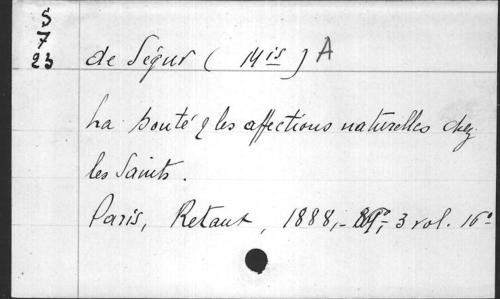 S
7
23
de Ségur (Mis) A
La bonté & les affections naturelles chez
les Saints.
Paris, Retaux, 1888,- 3 vol. 16°